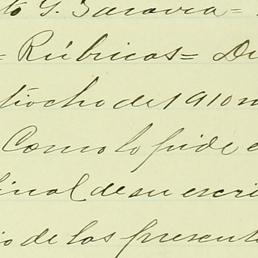 to G. Saravia=
= Rúbricas= D
tiocho de 1910 m
Como lo pide e
final de su escri
io de los present